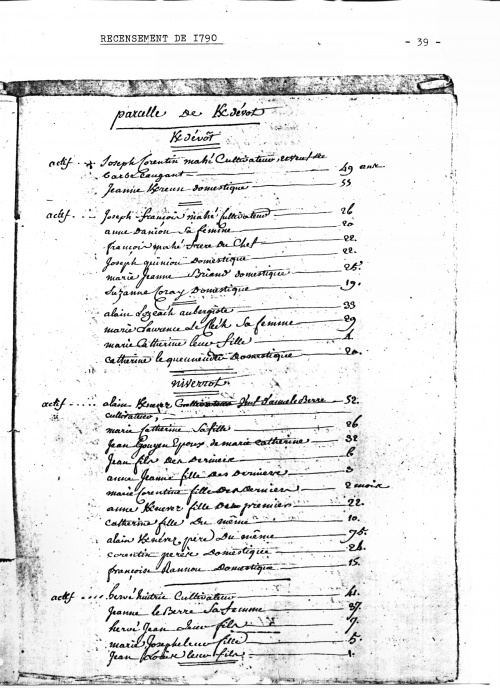 RECENSEMENT DE 1790
- 39 -
parcelle de K/dévot
K/dévot
actif Joseph Corentin mahé Cultivateur, veuf de
Barbe 49 ans
Jeanne domestique 55
actif Joseph françois mahé Cultivateur 26
anne Daniou Sa femme 20
françois mahé frere Du Chef 22.
Joseph quiniou Domestique 22.
marie Jeanne Briand domestique 25.
Suzanne Coray Domestique 19.
alain aubergiste 33
marie Laurence Le Sa femme 29
marie Catherine leur fille 1.
catherine le Domestique 20.
niverrot
actif alain le Berre 52.
cultivateur
marie Catherine Sa fille 26
Jean Epoux de marie Catherine 32
Jean fils des Derniers 6
anne Jeanne fille des Derniers 3
marie Corentine fille des Derniers 2 mois
anne fille des premiers 22.
catherine fille Du même 10.
alain pere Du même 75.
corentin Domestique 24.
françoise Rannou Domestique 15.
actif hervé Cultivateur 41.
Jeanne le Berre Sa femme 37.
hervé Jean leur fils 7.
marie Josephe leur fille 5.
Jean leur fils 1.